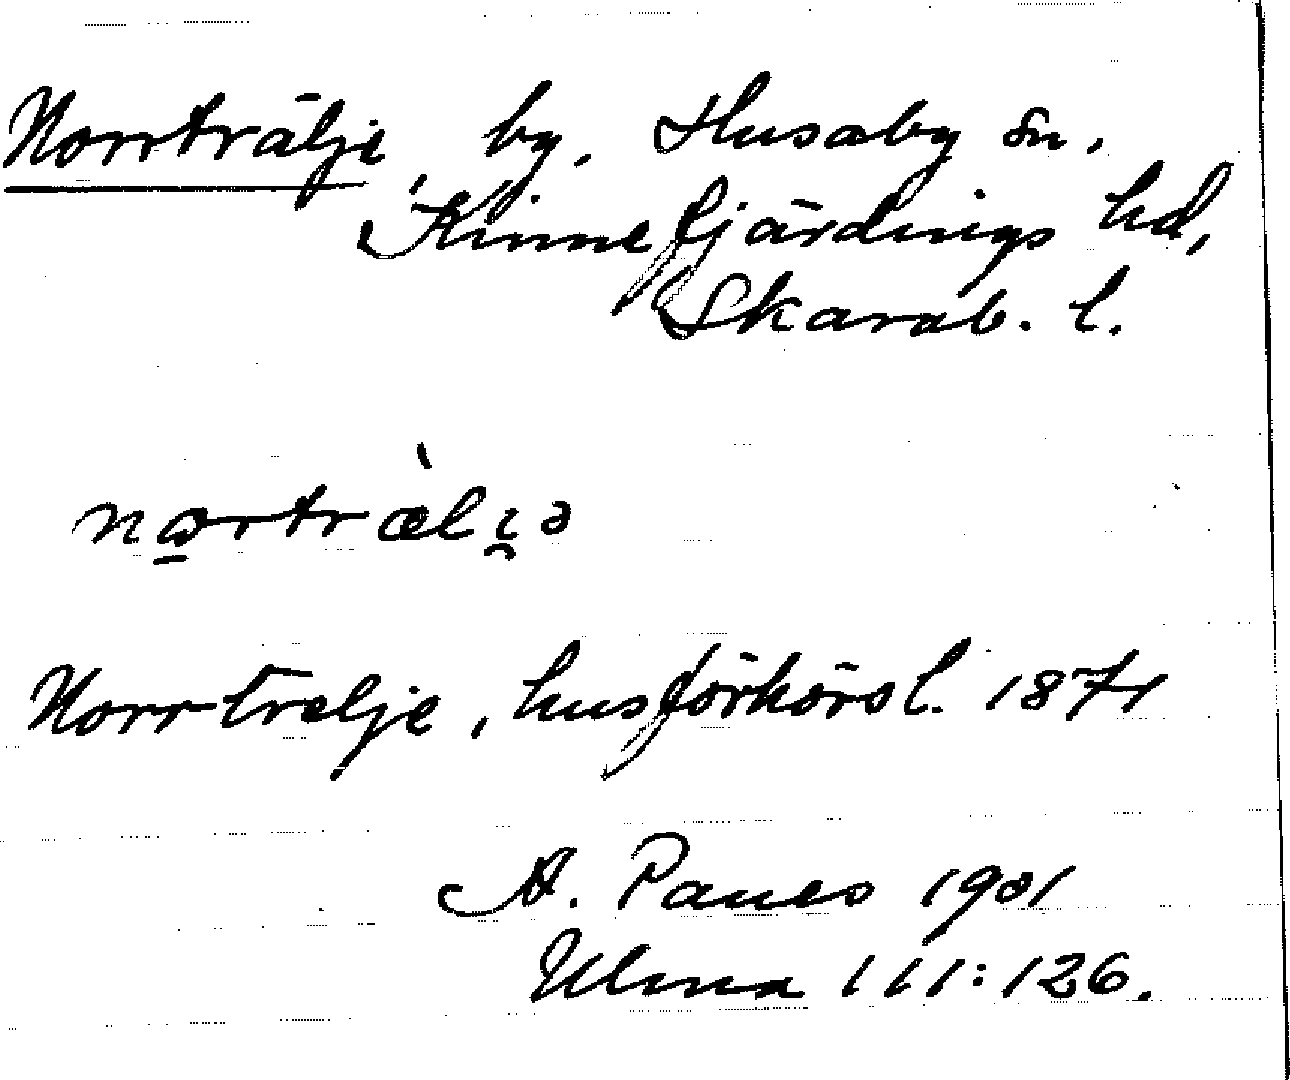 Norrträlje, by. Husaby sn,
Kinnefjärdings hd,
Skarab. l.
nɷrtræ̀li̯ə
Norr-trelje, husförhörsl. 1871
A. Paues 1901
Ulma 111:126.